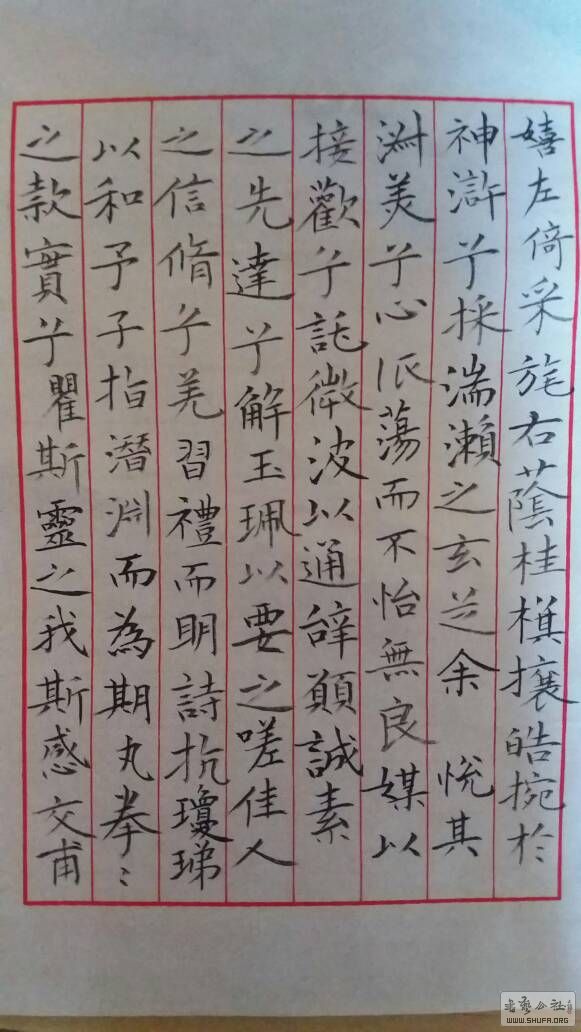 嬉左倚采旄右蔭桂旗攘皓捥於
神滸兮採湍瀨之玄芝余悅其
淑美兮心振蕩而不怡無良媒以
接歡兮託微波以通辭願誠素
之先達兮解玉珮以要之嗟佳人
之信脩兮羌習禮而明詩抗瓊珶
以和予兮指潛淵而為期執拳〻
之款實兮瞿斯靈之我斯感交甫
WWW.SHUFA.ORG